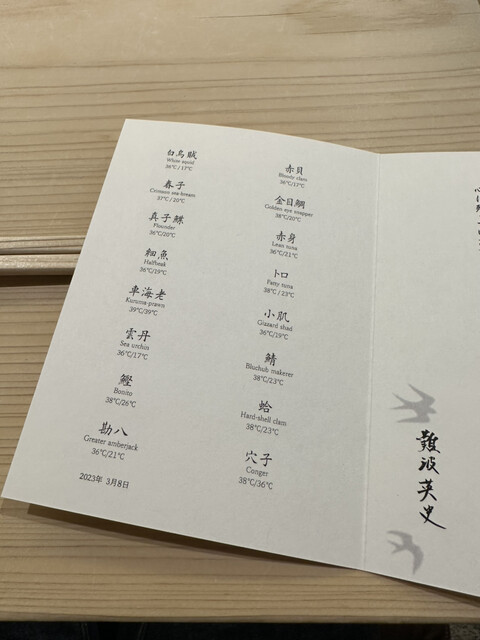 白烏賊
White squid
38℃/17℃
春子
Crimson sea-bream
37℃/20℃
真子鰈
Flounder
36℃/20℃
細魚
Halfbeak
36℃/19℃
車海老
Kuruma-prawn
39℃/39℃
雲丹
Sea urchin
36℃/17℃
鰹
Bonito
38℃/26℃
勘八
Greater amberjack
36℃/21℃
2023年 3月8日
赤貝
Bloody clam
38℃/17℃
金目鯛
Golden eye snapper
38℃/20℃
赤身
Lean tuna
36℃/21℃
トロ
Fatty tuna
38℃/23℃
小肌
Gizzard shad
36℃/19℃
鯖
Bluchub makerer
38℃/23℃
蛤
Hard-shell clam
38℃/23℃
穴子
Conger
38℃/36℃
難波英史